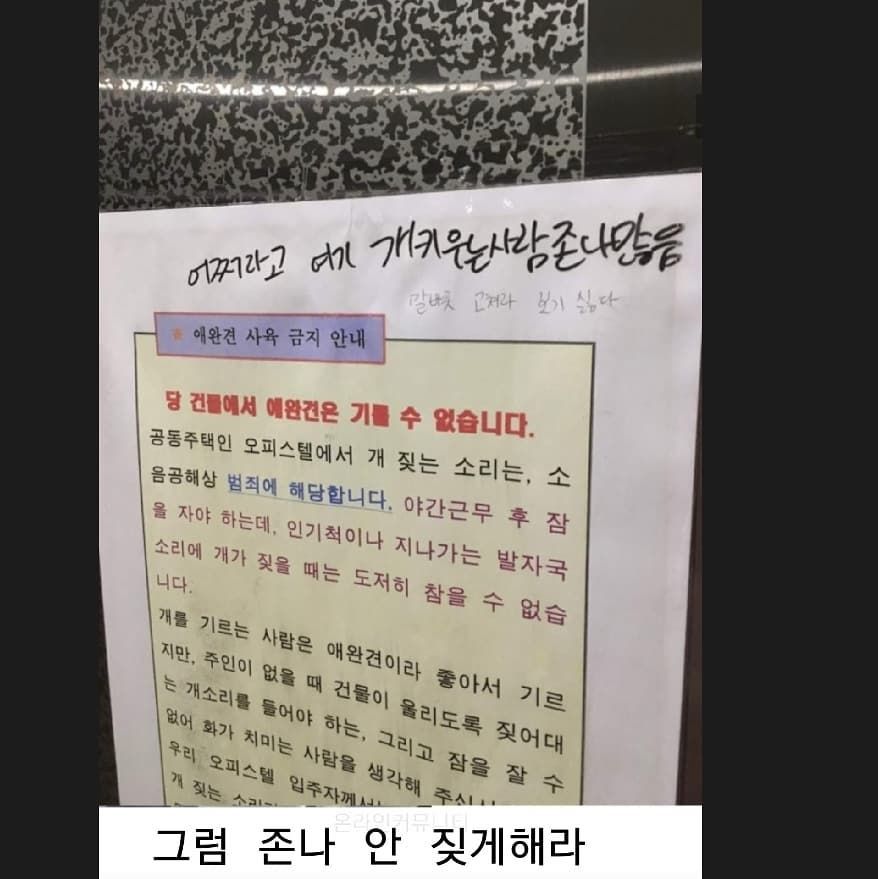 어쩌라고 여기 개키우는사람존나많음
말버릇 고쳐라 보기 싫다
애완견 사육 금지 안내
당 건물에서 애완견은 기를 수 없습니다.
공동주택인 오피스텔에서 개 짖는 소리는, 소
음공해상 범죄에 해당합니다. 야간근무 후 잠
을 자야 하는데, 인기척이나 지나가는 발자국
소리에 개가 짖을 때는 도저히 참을 수 없습
니다.
개를 기르는 사람은 애완견이라 좋아서 기르
지만, 주인이 없을 때 건물이 울리도록 짖어대
는 개소리를 들어야 하는, 그리고 잠을 잘 수
없어 화가 치미는 사람을 생각해
우리 오피스텔 입주자께서는
개 짖는
온라인커뮤니티
그럼 존나 안 짖게해라